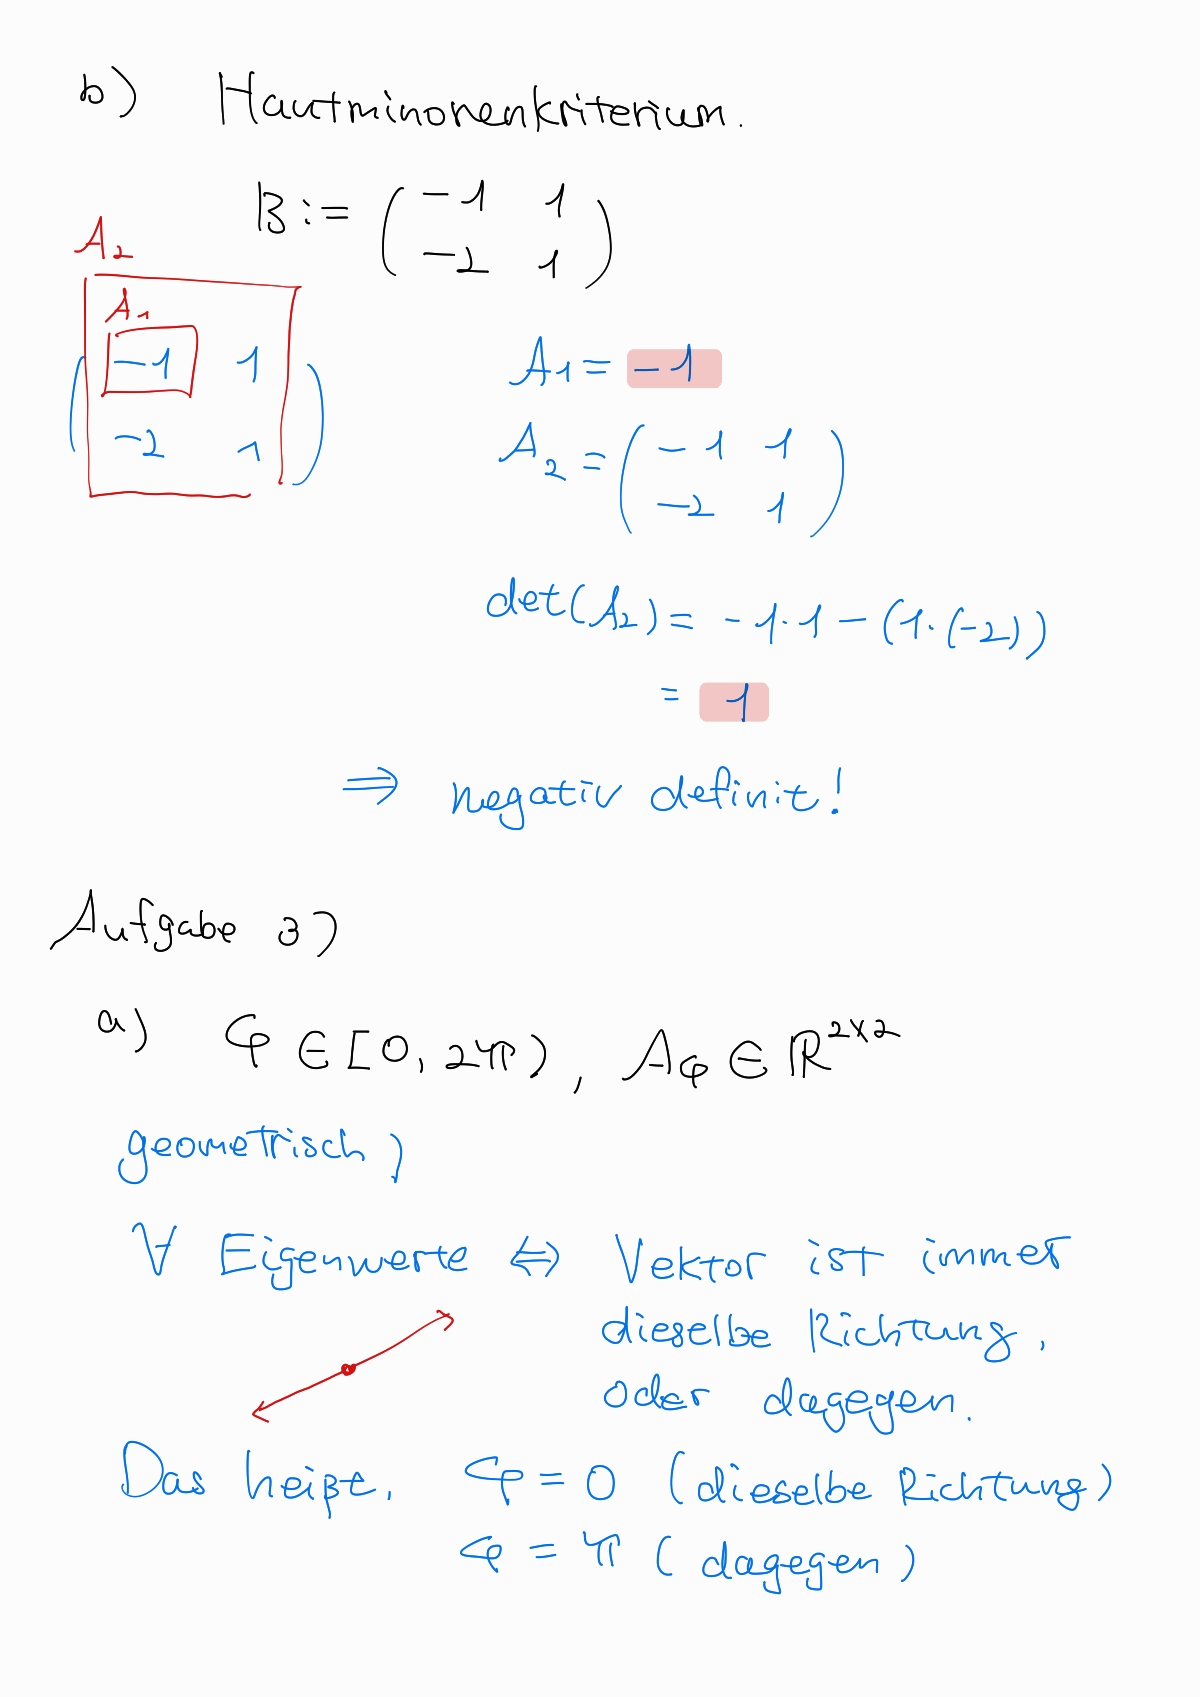 b) Hautminorenkriterium.
B := ( -1 1
-2 1 )
A2
A1
( -1 1
-2 1 )
A1 = -1
A2 = ( -1 1
-2 1 )
det(A2) = -1·1 - (1·(-2))
= 1
⇒ negativ definit!
Aufgabe 3)
a) φ ∈ [0, 2π), Aφ ∈ ℝ^{2×2}
geometrisch)
∀ Eigenwerte ⇔ Vektor ist immer
dieselbe Richtung,
oder dagegen.
Das heißt, φ = 0 (dieselbe Richtung)
φ = π (dagegen)